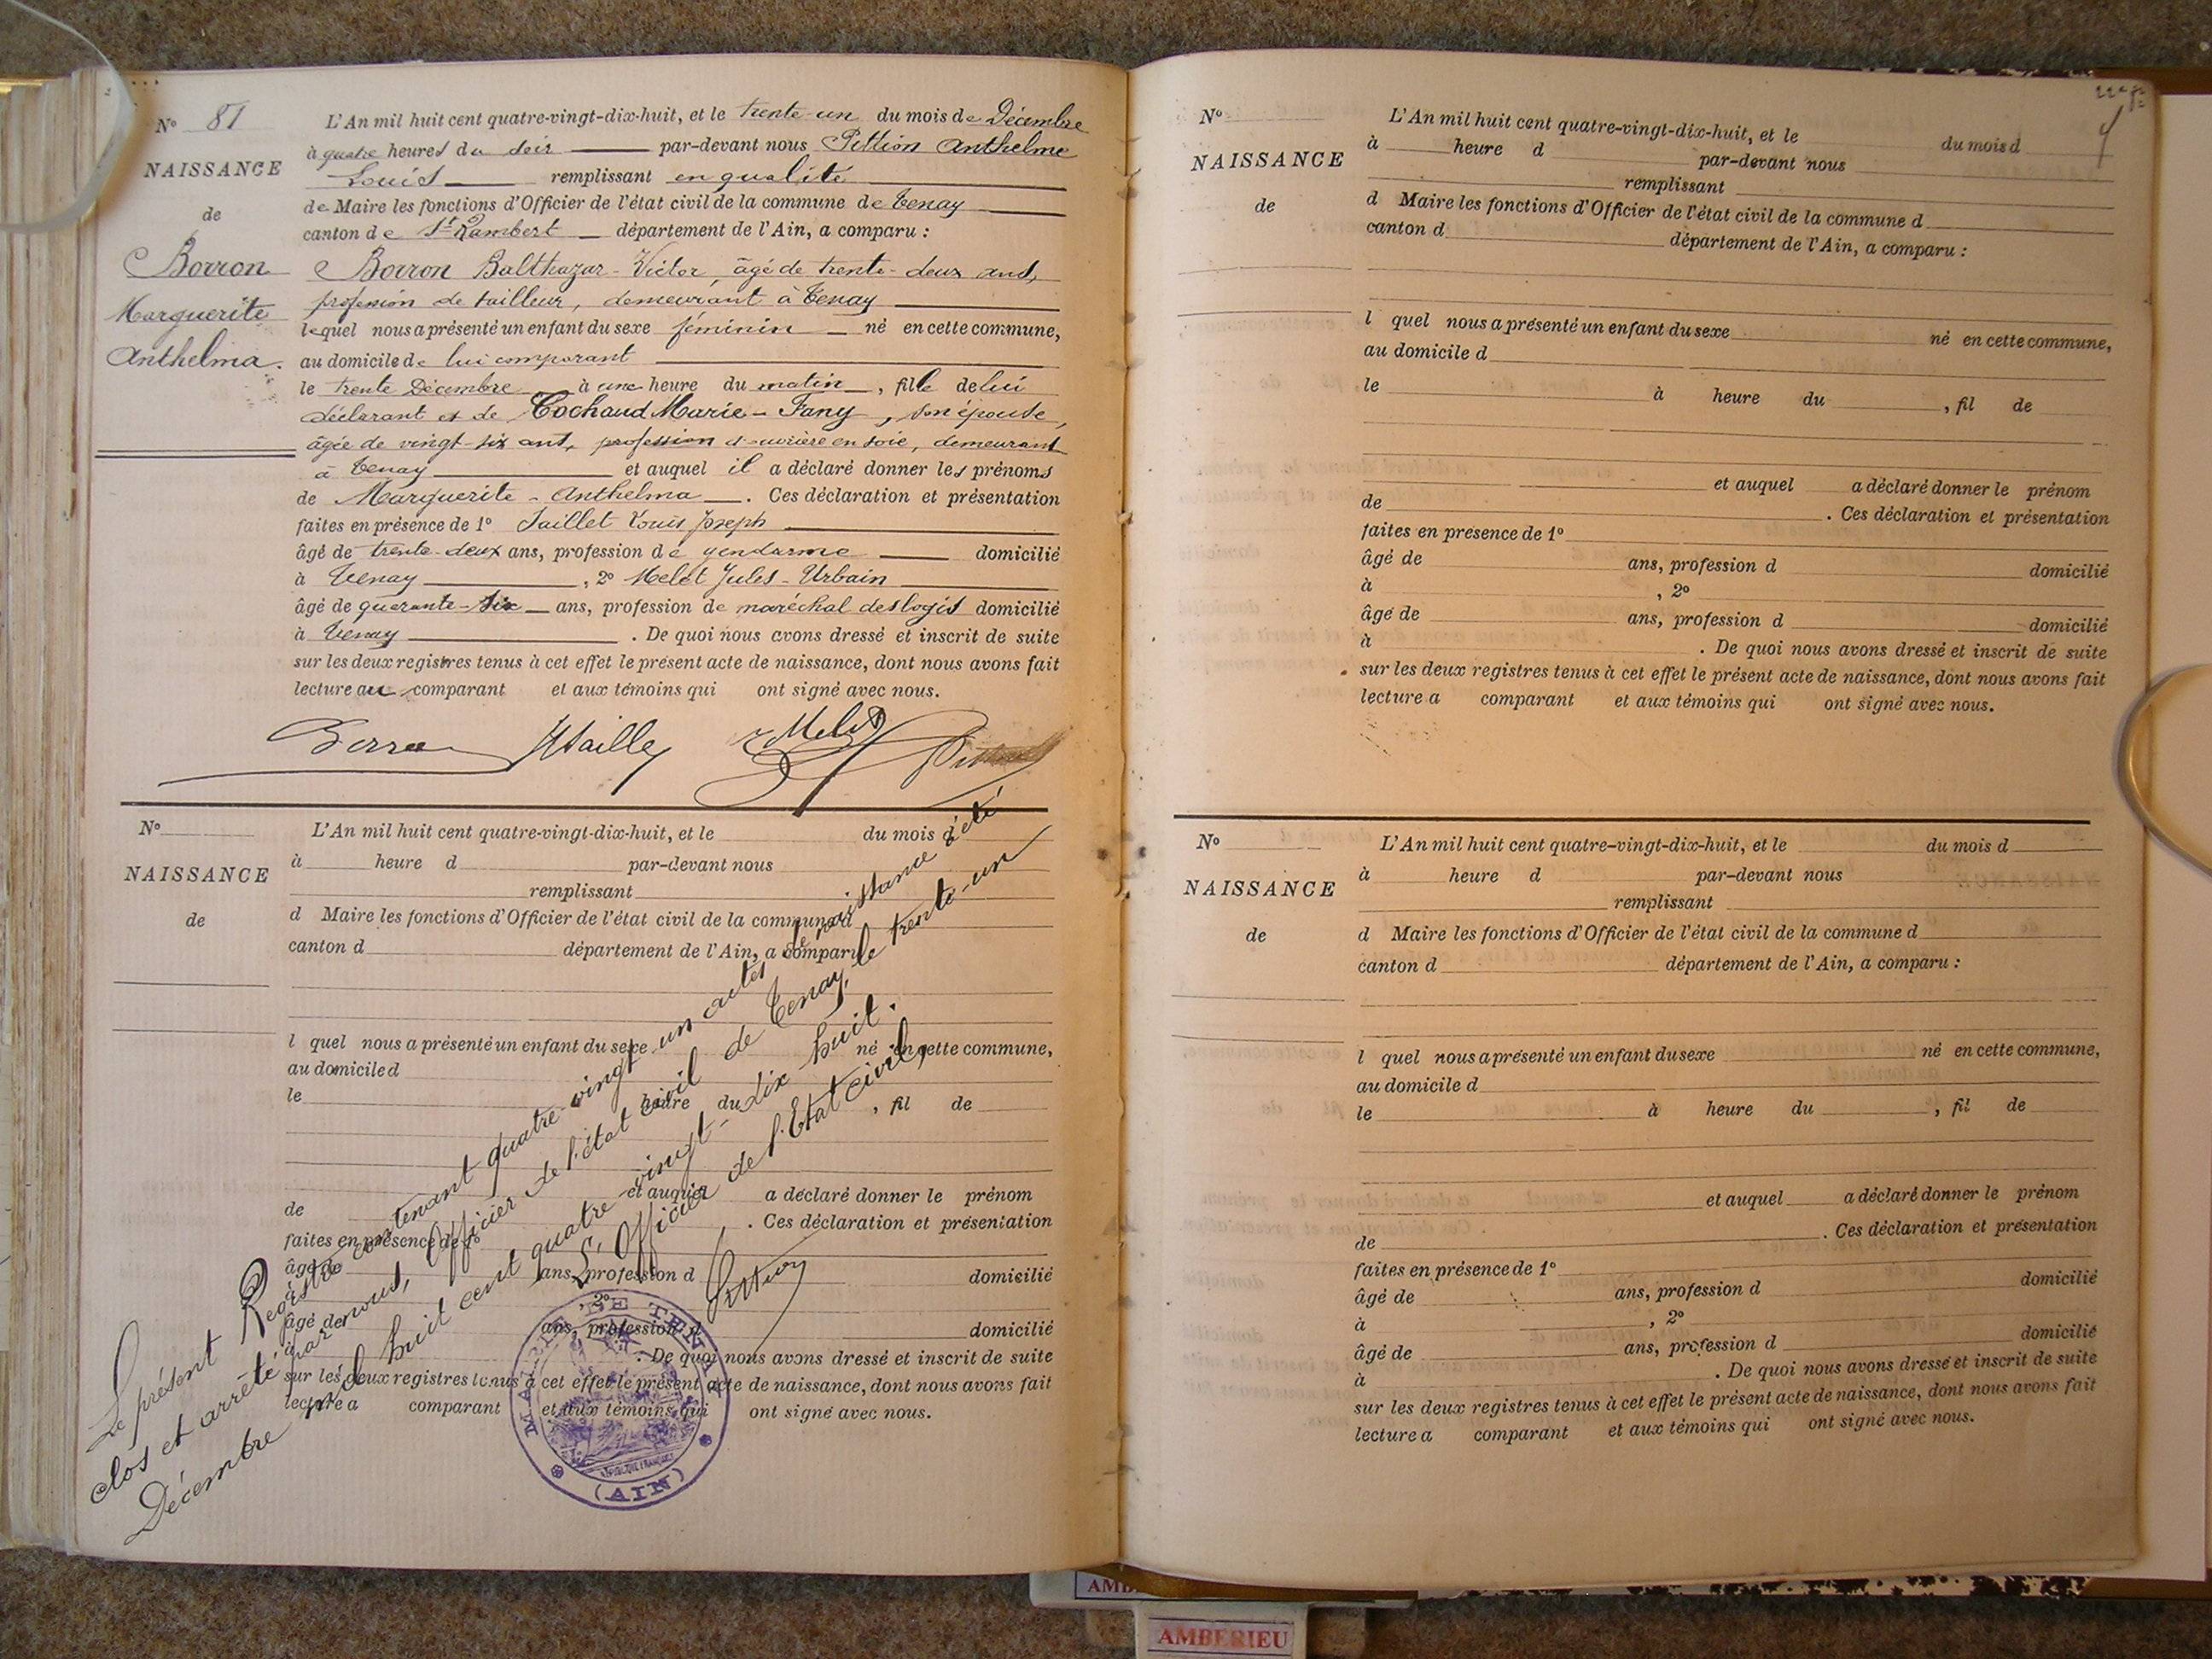 N° 81
NAISSANCE
de
Borron
Marguerite
Anthelma.
L'An mil huit cent quatre-vingt-dix-huit, et le trente-un du mois de Décembre
à quatre heures du soir par-devant nous Pittion Anthelme
Louis remplissant en qualité
de Maire les fonctions d'Officier de l'état civil de la commune de Tenay
canton de St Rambert département de l'Ain, a comparu :
Borron Balthazar-Victor, âgé de trente-deux ans,
profession de tailleur, demeurant à Tenay
lequel nous a présenté un enfant du sexe féminin né en cette commune,
au domicile de lui comparant
le trente Décembre à une heure du matin, fille de lui
déclarant et de Cochaud Marie-Fany, son épouse,
âgée de vingt-six ans, profession d'ouvrière en soie, demeurant
à Tenay et auquel il a déclaré donner les prénoms
de Marguerite-Anthelma. Ces déclaration et présentation
faites en présence de 1° Jaillet Louis Joseph
âgé de trente-deux ans, profession de gendarme domicilié
à Tenay, 2° Melet Jules-Urbain
âgé de quarante-six ans, profession de maréchal des logis domicilié
à Tenay. De quoi nous avons dressé et inscrit de suite
sur les deux registres tenus à cet effet le présent acte de naissance, dont nous avons fait
lecture au comparant et aux témoins qui ont signé avec nous.
N°
NAISSANCE
de
L'An mil huit cent quatre-vingt-dix-huit, et le du mois d
à heure d par-devant nous
remplissant
d Maire les fonctions d'Officier de l'état civil de la commune d
canton d département de l'Ain, a comparu :
l quel nous a présenté un enfant du sexe né en cette commune,
au domicile d
le heure du , fil de
et auquel a déclaré donner le prénom
de . Ces déclaration et présentation
faites en présence de 1°
âgé de ans, profession d domicilié
à , 2°
âgé de ans, profession d domicilié
à . De quoi nous avons dressé et inscrit de suite
sur les deux registres tenus à cet effet le présent acte de naissance, dont nous avons fait
lecture a comparant et aux témoins qui ont signé avec nous.
Le présent Registre contenant quatre-vingt un actes de naissance a été
clos et arrêté par nous, Officier de l'état civil de Tenay, le trente-un
Décembre mil huit cent quatre vingt-dix huit.
L'Officier de l'Etat civil,
Pittion
MAIRIE DE TENAY
RÉPUBLIQUE FRANÇAISE
(AIN)
N°
NAISSANCE
de
L'An mil huit cent quatre-vingt-dix-huit, et le du mois d
à heure d par-devant nous
remplissant
d Maire les fonctions d'Officier de l'état civil de la commune d
canton d département de l'Ain, a comparu :
l quel nous a présenté un enfant du sexe né en cette commune,
au domicile d
le à heure du , fil de
et auquel a déclaré donner le prénom
de . Ces déclaration et présentation
faites en présence de 1°
âgé de ans, profession d domicilié
à , 2°
âgé de ans, profession d domicilié
à . De quoi nous avons dressé et inscrit de suite
sur les deux registres tenus à cet effet le présent acte de naissance, dont nous avons fait
lecture a comparant et aux témoins qui ont signé avec nous.
N°
NAISSANCE
de
L'An mil huit cent quatre-vingt-dix-huit, et le du mois d
à heure d par-devant nous
remplissant
d Maire les fonctions d'Officier de l'état civil de la commune d
canton d département de l'Ain, a comparu :
l quel nous a présenté un enfant du sexe né en cette commune,
au domicile d
le à heure du , fil de
et auquel a déclaré donner le prénom
de . Ces déclaration et présentation
faites en présence de 1°
âgé de ans, profession d domicilié
à , 2°
âgé de ans, profession d domicilié
à . De quoi nous avons dressé et inscrit de suite
sur les deux registres tenus à cet effet le présent acte de naissance, dont nous avons fait
lecture a comparant et aux témoins qui ont signé avec nous.
AMBERIEU